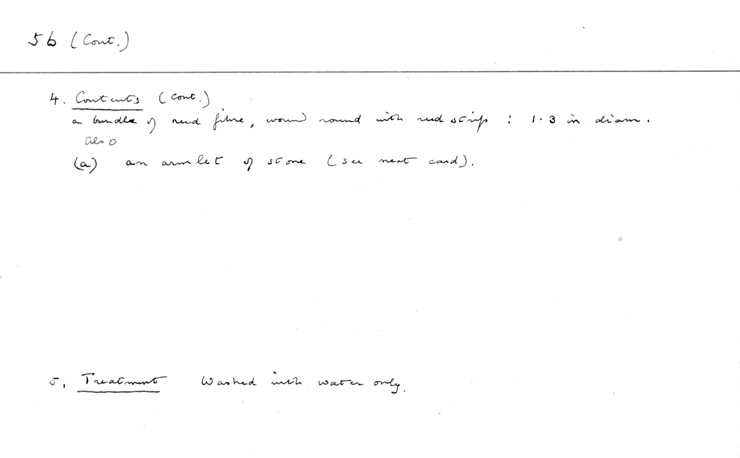 56 (Cont.)
4. Contents (cont.)
a bundle of reed fibre, wound round with reed strips : 1.3 in diam.
also
(a) an armlet of stone (see next card).
5. Treatment Washed with water only.